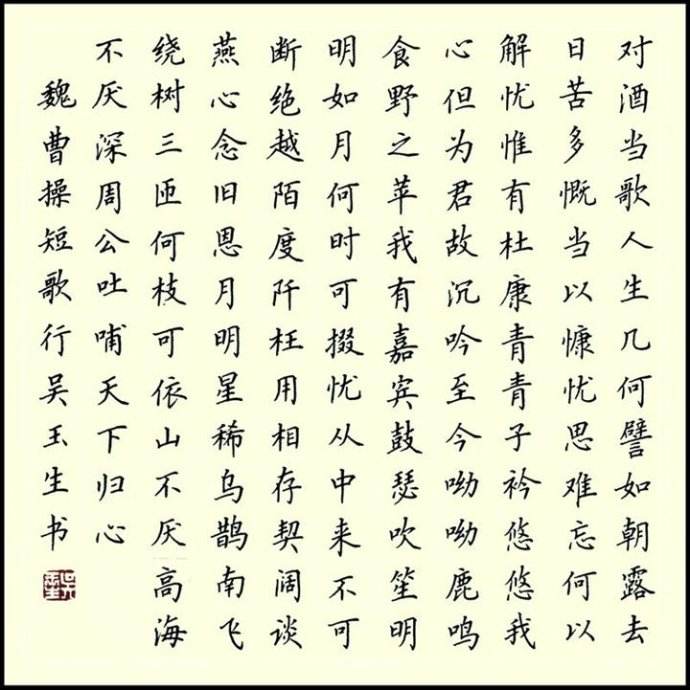 对酒当歌人生几何譬如朝露去
日苦多慨当以慷忧思难忘何以
解忧惟有杜康青青子衿悠悠我
心但为君故沉吟至今呦呦鹿鸣
食野之苹我有嘉宾鼓瑟吹笙明
明如月何时可掇忧从中来不可
断绝越陌度阡枉用相存契阔谈
燕心念旧恩月明星稀乌鹊南飞
绕树三匝何枝可依山不厌高海
不厌深周公吐哺天下归心
魏曹操短歌行吴玉生书